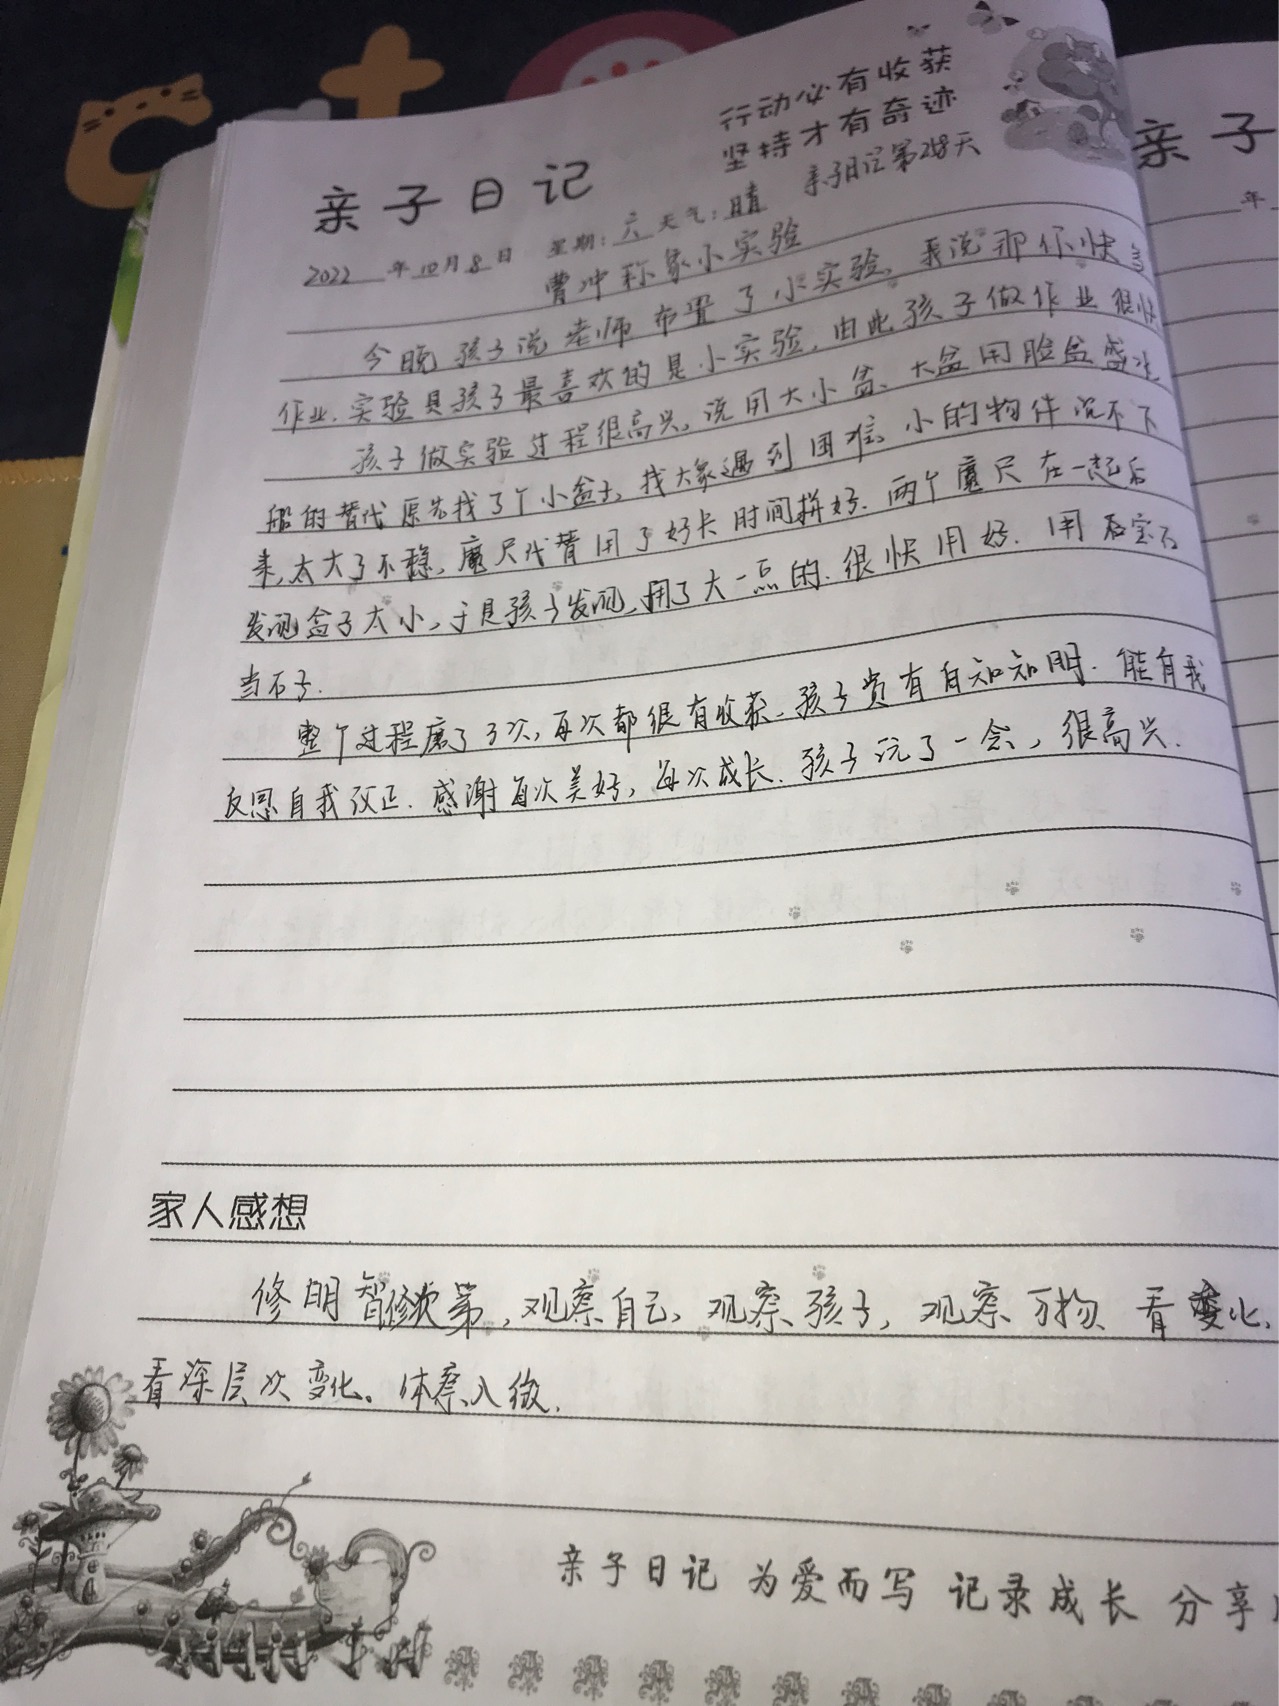 cat
行动必有收获
坚持才有奇迹
亲子日记
亲子日记第248天
2022年10月8日 星期:六 天气:晴
曹冲称象小实验
今晚孩子说老师布置了小实验,我说那你快写
作业.实验是孩子最喜欢的是小实验,由此孩子做作业很快
孩子做实验过程很高兴,说用大小盆、大盆用脸盆盛水
船的替代原先找了个小盒子,找大象遇到困难,小的物件沉不下
来,太大了不稳,魔尺代替用了好长时间拼好.两个魔尺在一起后
发现盒子太小,于是孩子发现,用了大一点的.很快用好.用石宝石
当石子.
整个过程磨了3次,每次都很有收获、孩子贵有自知知明.能自我
反思自我改正.感谢每次美好,每次成长.孩子玩了一会,很高兴.
亲子
年
家人感想
修明智修次第,观察自己、观察孩子,观察万物 看变化,
看深层次变化。体察入微.
亲子日记 为爱而写 记录成长 分享